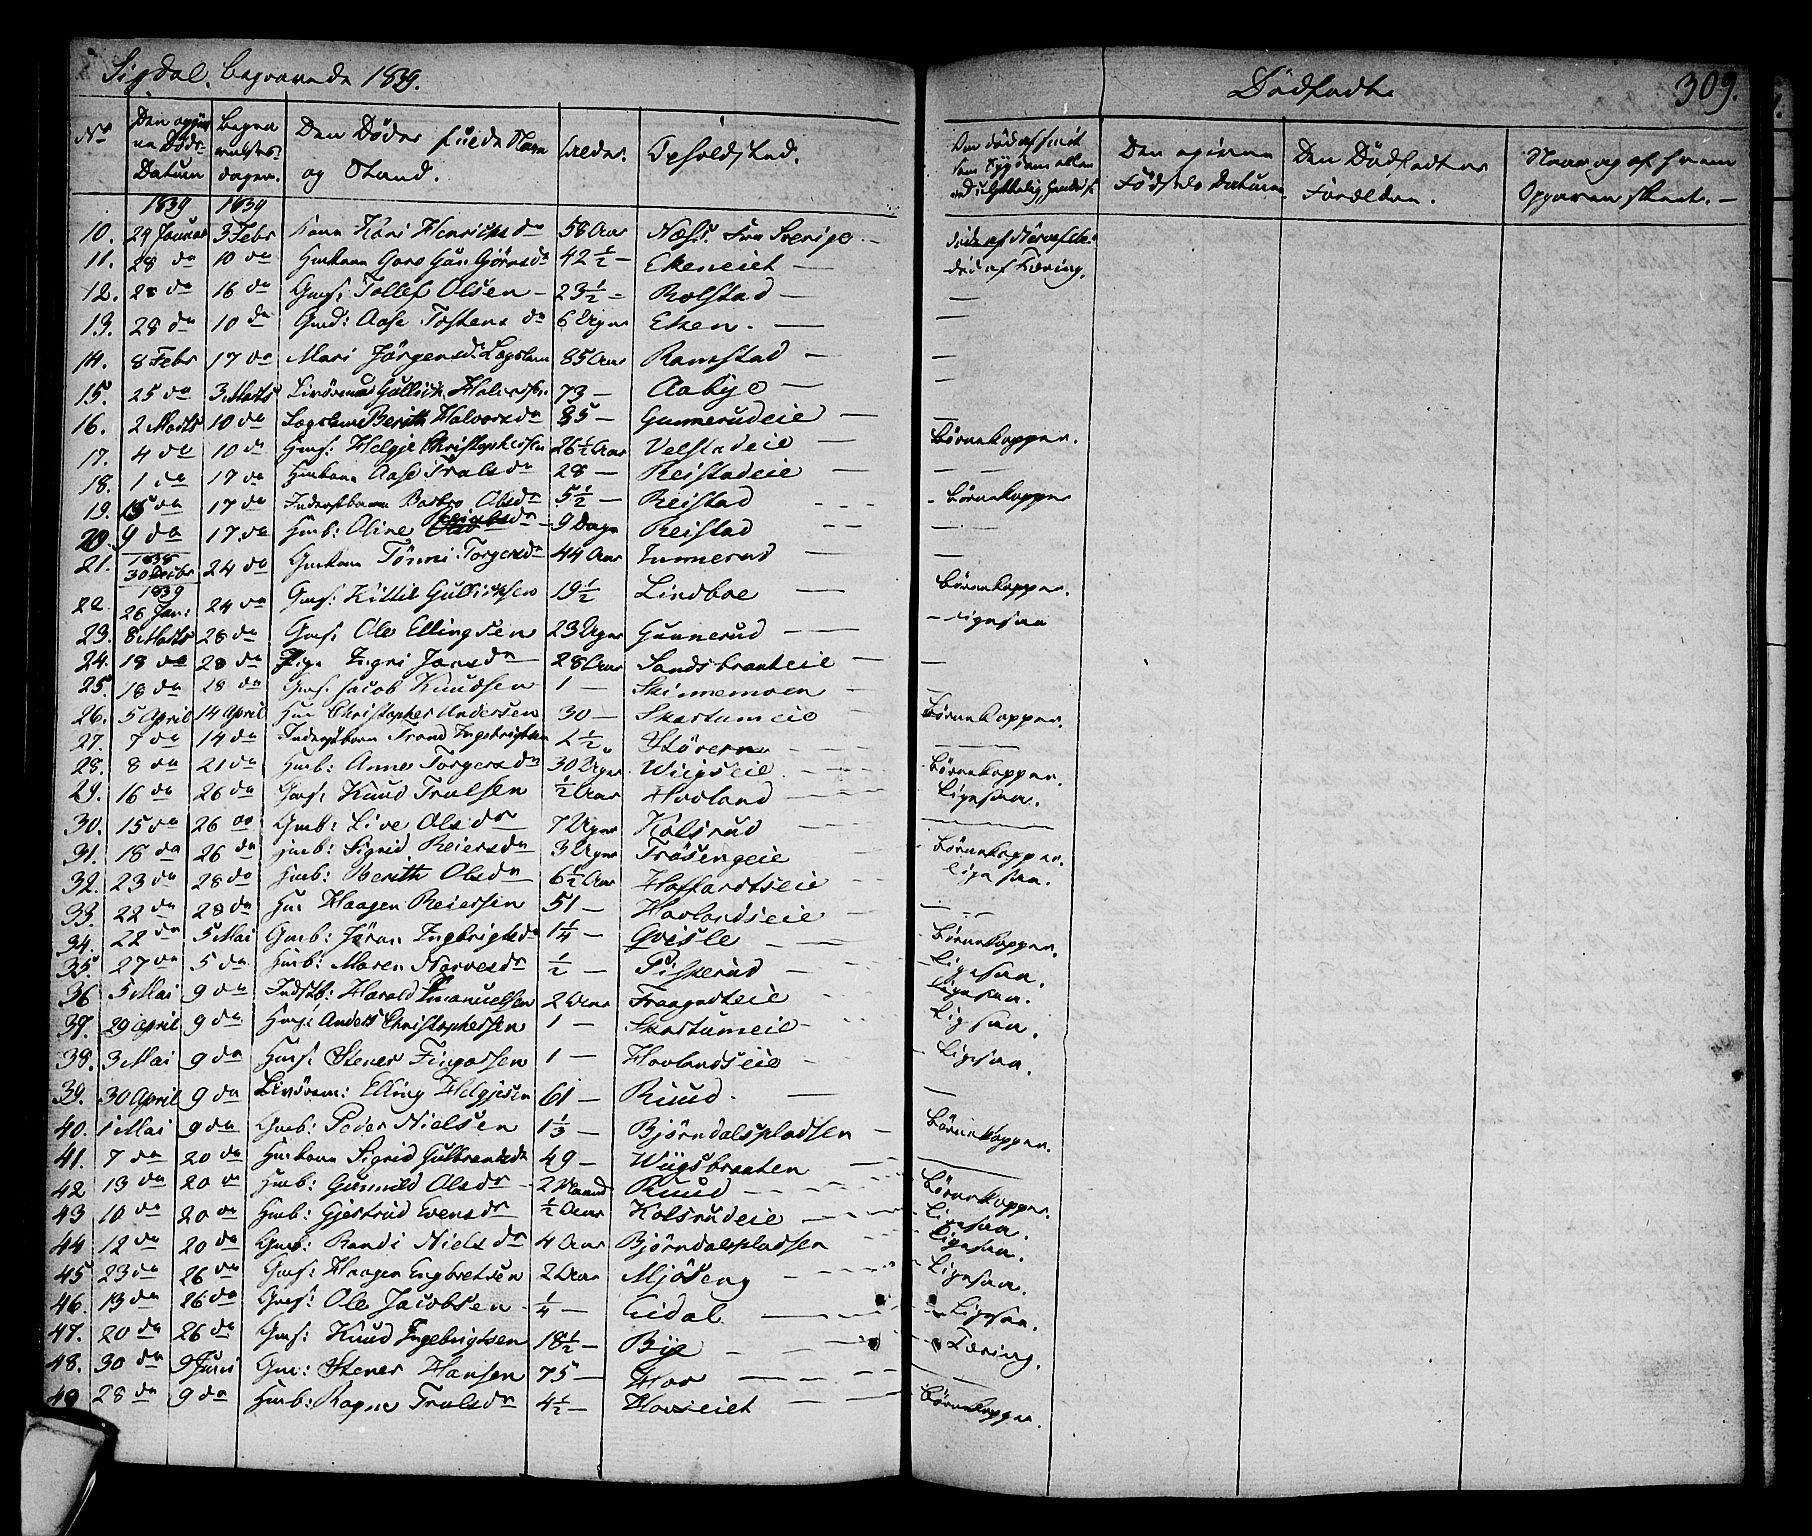 Sigdal. begravede 1839.
Dödfödte
309.
No
Den opgivne Döds Datum
Begravelses dagen.
Den Dödes fulde Navn og Stand.
Alder.
Opholdsted.
Om död af smitsom Sygdom eller ved ulykkelig Hændelse
Den opgivne Fødsels Datum
Den Dödfødtes Forældre.
Naar og af hvem Opgaven skeet. —
1839 1839
10. 29 Januar 3 Febr Kone Kari Henriksdr 58 Aar Næss. fra Sverige — död af
11. 28 do 10 do Huuskone Goro Gunbjörnsdr 42 1/2 — Ekeneiet — död af Tæring.
12. 28 do 16 do Gmf: Tollef Olsen — 23 1/2 — Rolstad — —
13. 28 do 10 do Gmd: Aase Tostensdr 6 Uger Eken. — —
14. 8 Febr 17 do Mari Jörgensdr. Lægslem 85 Aar Ramstad — —
15. 25 do 3 Marts Livöremd Gullich Halvorsen 73 — Aabye — —
16. 2 Marts 10 do Lægslem Berith Halvorsdr 85 — Gunnerudeie — —
17. 4 do 10 do Gmf: Helgje Christophersen 26 1/2 Aar Velstadeie — Börnekopper.
18. 1 do 17 do Huuskone Aase Trulsdr 28 — Reistadeie — — —
19. 15 do 17 do Inderstbarn Barbro Olsdr 5 1/2 — Reistad — — Börnekopper
20. 9 do 17 do Hmb: Oline dr — 9 Dage Reistad — — — —
21. 1838 30 Decbr 24 do Gmkone Tönni Torgersdr 44 Aar Tunnerud — —
22. 1839 26 Jan: 24 do Gmf: Kittil Gullichsen 19 1/2 Lindboe — Börnekopper.
23. 8 Marts 28 do Gmf: Ole Ellingsen 23 Uger Gunnerud — — — ligesaa
24. 18 do 28 do Pige Ingri Jonsdr 28 Aar Sandsbraateie — —
25. 18 do 28 do Gmf: Jacob Knudsen 1 — Skinnemoen — —
26. 5 April 14 April Huu Christopher Andersen 30 — Skartumeie — Börnekopper.
27. 7 do 14 do Inderstbarn Trond Ingebrigtsen 2 1/2 Støveren — — — —
28. 8 do 21 do Hmb: Anne Torgersdr 30 Uger Wiigseie — — — Börnekopper.
29. 16 do 26 do Gmf: Knud Trulsen 1/2 Aar Hovland — — — Ligesaa.
30. 15 do 26 do Gmb: Live Olsdr 7 Uger Kolsrud — — — —
31. 18 do 26 do Hmb: Sigrid Reiersdr 3 Uger Trösengeie — — Börnekopper.
32. 23 do 28 do Hmb: Berith Olsdr 6 1/2 Aar Hoffartseie — — ligesaa.
33. 22 do 28 do Huu Haagen Reiersen 51 — Hovlandseie — — — —
34. 22 do 5 Mai Gmb: Jöran Ingbrigtsdr 1 1/4 — Qvisle — — — Börnekopper.
35. 27 do 5 do Hmb: Maren Narvesdr 1/2 — Piperud — — Ligesaa.
36 5 Mai 9 do Indstb: Harald Emanuelsen 2 Aar Fraagndteie — — ligesaa.
37. 29 April 9 do Hmf: Anders Christophersen 1 — Skartumeie — — Ligesaa.
38. 3 Mai 9 do Hmf: Stener Fingarsen 1 — Hovlandseie — — Ligesaa.
39. 30 April 9 do Livörem: Elling Helgjesen 61 — Ruud. — —
40. 1 Mai 9 do Gmb: Peder Nielsen 1 1/3 — Björndalspladsen — Börnekopper.
41. 7 do 20 do Huuskone Sigrid Gulbrandsdr 49 — Wiigsbraaten — —
42 13 do 20 do Hmb: Gunnild Olsdr 2 Maand Ruud — — — Börnekopper.
43 10 do 20 do Hmb: Gjertrud Evensdr 1/2 Aar Kolsrudeie — — — Ligesaa.
44 12 do 20 do Gmb: Randi Nielsdr 4 Aar Björndalspladsen — — Ligesaa.
45 23 do 26 do Gmf: Haagen Engbretsen 2 Aar Mjöseng — — — Ligesaa.
46. 13 do 26 do Gmf: Ole Jacobsen 1/4 — Eidal — — — Ligesaa.
47. 20 do 26 do Gmf: Knud Ingebrigtsen 18 1/2 — Bye — — — Tæring.
48. 30 do 9 Juni Gm: Stener Hansen 75 — Hov — — — —
49 28 do 9 do Hmb: Ragne Trulsdr 4 1/2 — Hovseiet — — Börnekopper.